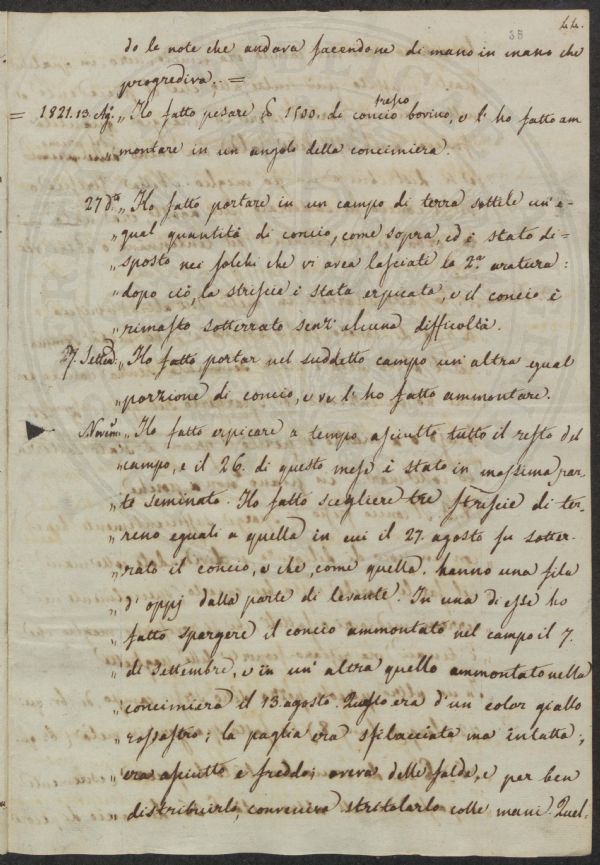 44.
38
do le note che andava facendone di mano in mano che
progrediva. =
= 1821. 13. Ag.° „ Ho fatto pesare 1500. di concio fresco bovino, e l'ho fatto am
„ montare in un angolo della concimiera.
27 d.° „ Ho fatto portare in un campo di terra sottile un' e-
„ gual quantità di concio, come sopra, ed è stato di=
„ sposto nei solchi che vi avea lasciati la 2.a aratura:
„ dopo ciò, la striscia è stata erpicata, e il concio è
„ rimasto sotterrato senz' alcuna difficoltà.
7. Settem: „ Ho fatto portar nel suddetto campo un' altra egual
„ porzione di concio, e ve l'ho fatto ammontare.
Novem: „ Ho fatto erpicare a tempo asciutto tutto il resto del
„ campo, e il 26. di questo mese è stato in massima par-
„ te seminato. Ho fatto scegliere tre striscie di ter-
„ reno eguali a quella in cui il 27. agosto fu sotter-
„ rato il concio, e che, come quella, hanno una fila
„ d' oppj dalla parte di levante. In una di esse ho
„ fatto spargere il concio ammontato nel campo il 7.
„ di settembre, e in un' altra quello ammontato nella
„ concimiera il 13. agosto. Questo era d'un color giallo
„ rossastro; la paglia era sfilacciata ma intatta;
„ era asciutto e freddo; aveva delle falde, e per ben
„ distribuirlo, conveniva stritolarlo colle mani. Quel-